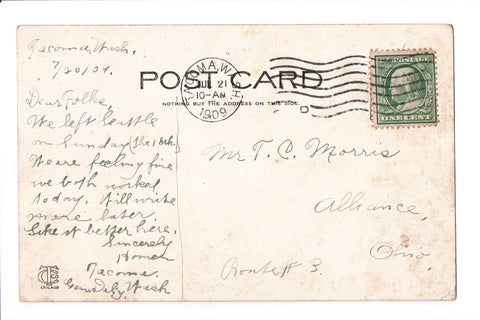 Tacoma, Wash.
7/20/09.
Dear Folks,
We left Seattle
on Sunday (the 18th.)
We are feeling fine
we both worked
today. Will write
more later.
Like it better here.
Sincerely
Homer
Tacoma.
Gen. Wash
POST CARD
NOTHING BUT THE ADDRESS ON THIS SIDE.
TACOMA, WASH.
JUL 21
10-AM
1909
D
ONE CENT
Mr T. C. Morris
Alliance,
Ohio,
Route # 3.
CT CO
CHICAGO